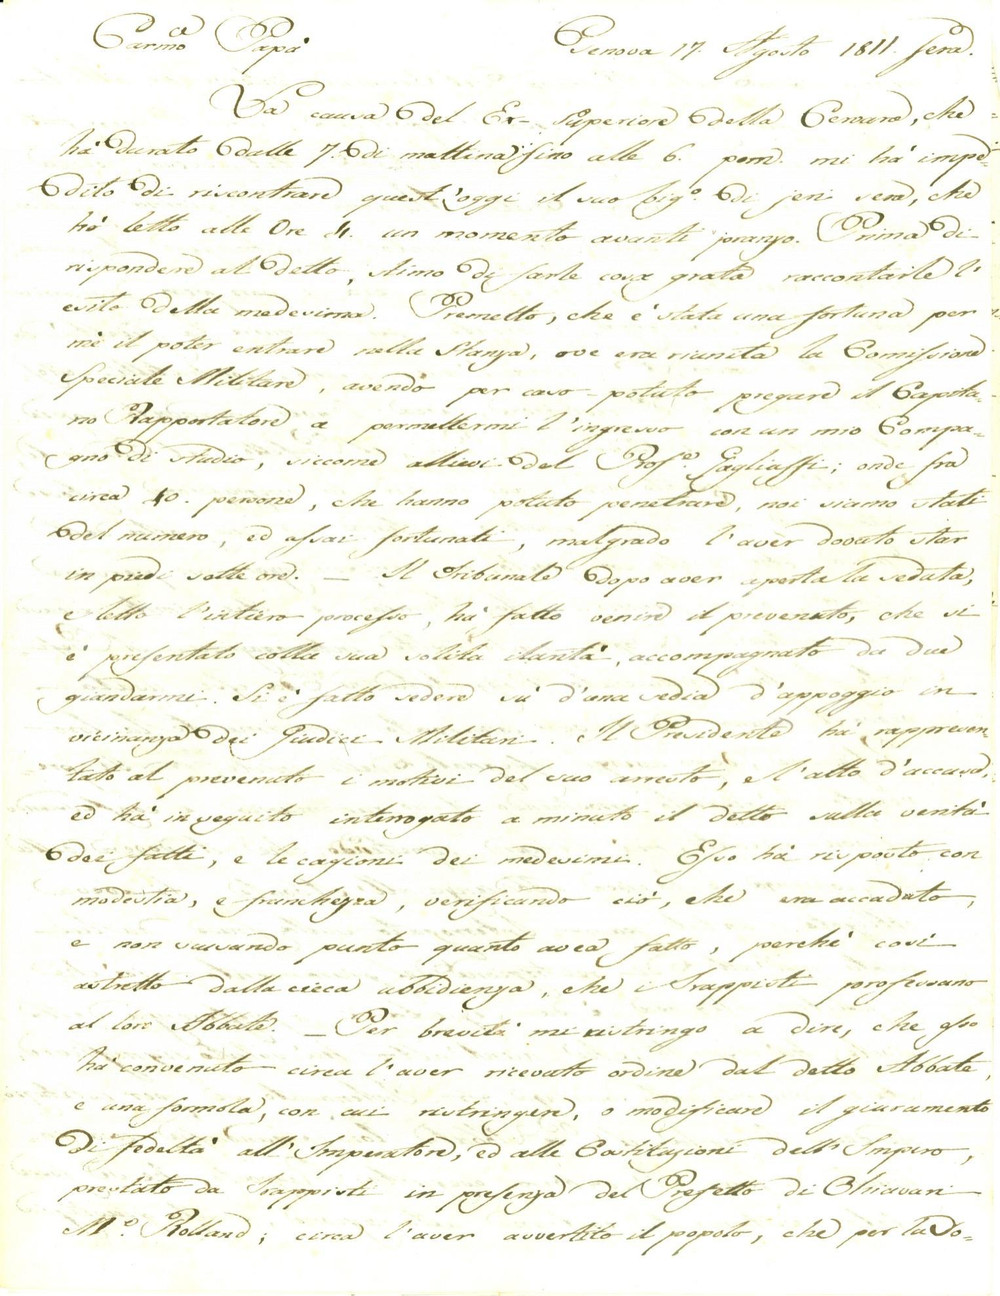 Carmo Papà Genova 17. Agosto 1811. sera.
La causa del Ex-Superiore della Cervara, che
hà durato dalle 7. di mattina sino alle 6. pom. mi hà impe=
dito di riscontrare quest'oggi il suo bigo. di jeri sera, che
hò letto alle Ore 4. un momento avanti pranzo. Prima di
rispondere al detto, stimo di farle cosa grata raccontarle l'
esito della medesima. Premetto, che è stata una fortuna per
mè il poter entrare nella Stanza, ove era riunita la Comissione
Speciale Militare, avendo per caso potuto pregare il Capita=
no Rapportatore a permettermi l'ingresso con un mio Compa=
gno di studio, siccome allievi del Profe. Gagliuffi; onde frà
circa 40. persone, che hanno potuto penetrare, noi siamo stati
del numero, ed assai fortunati, malgrado l'aver dovuto star
in piedi sette ore. — Il Tribunale dopo aver aperta la seduta,
e letto l'intiero processo, hà fatto venire il prevenuto, che si
è presentato colla sua solita ilarità, accompagnato da due
giandarmi. Si è fatto sedere sù d'una sedia d'appoggio in
vicinanza dei Giudici Militari. Il Presidente hà rappresen
tato al prevenuto i motivi del suo arresto, e l'atto d'accusa,
ed hà in seguito interrogato a minuto il detto sulla verità
dei fatti, e le cagioni dei medesimi. Esso hà risposto con
modestia, e franchezza, verificando ciò, che era accaduto,
e non scusando punto quanto avea fatto, perchè così
astretto dalla cieca ubbidienza, che i Trappisti professano
al loro Abbate. — Per brevità mi ristringo a dire, che esso
hà convenuto circa l'aver ricevuto ordine dal detto Abbate,
e una formola, con cui ristringere, o modificare il giuramento
di fedeltà all'Imperatore, ed alle Costituzioni dell'Impero,
prestato da Trappisti in presenza del Prefetto di Chiavari
Mo. Rolland; circa l'aver avvertito il popolo, che per la Do=